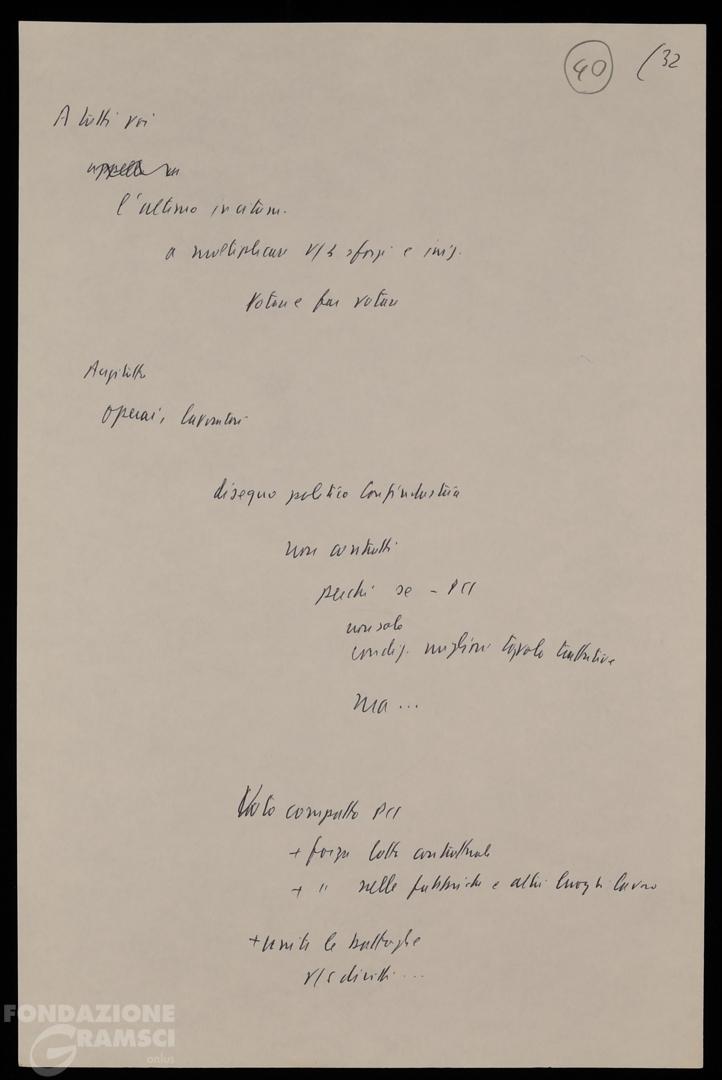 40 (32
A tutti voi
l'ultimo incitam.
a moltiplicare v/s sforzi e iniz.
Votare e far votare
Anzitutto
operai, lavoratori
disegno politico Confindustria
non contratti
perché se - PCI
non solo
condiz. migliori tavolo trattative
ma ...
Voto compatto PCI
+ forza lotte contrattuali
+ " nelle fabbriche e altri luoghi lavoro
+ unite le battaglie
v/s diritti ...
FONDAZIONE
GRAMSCI
onlus